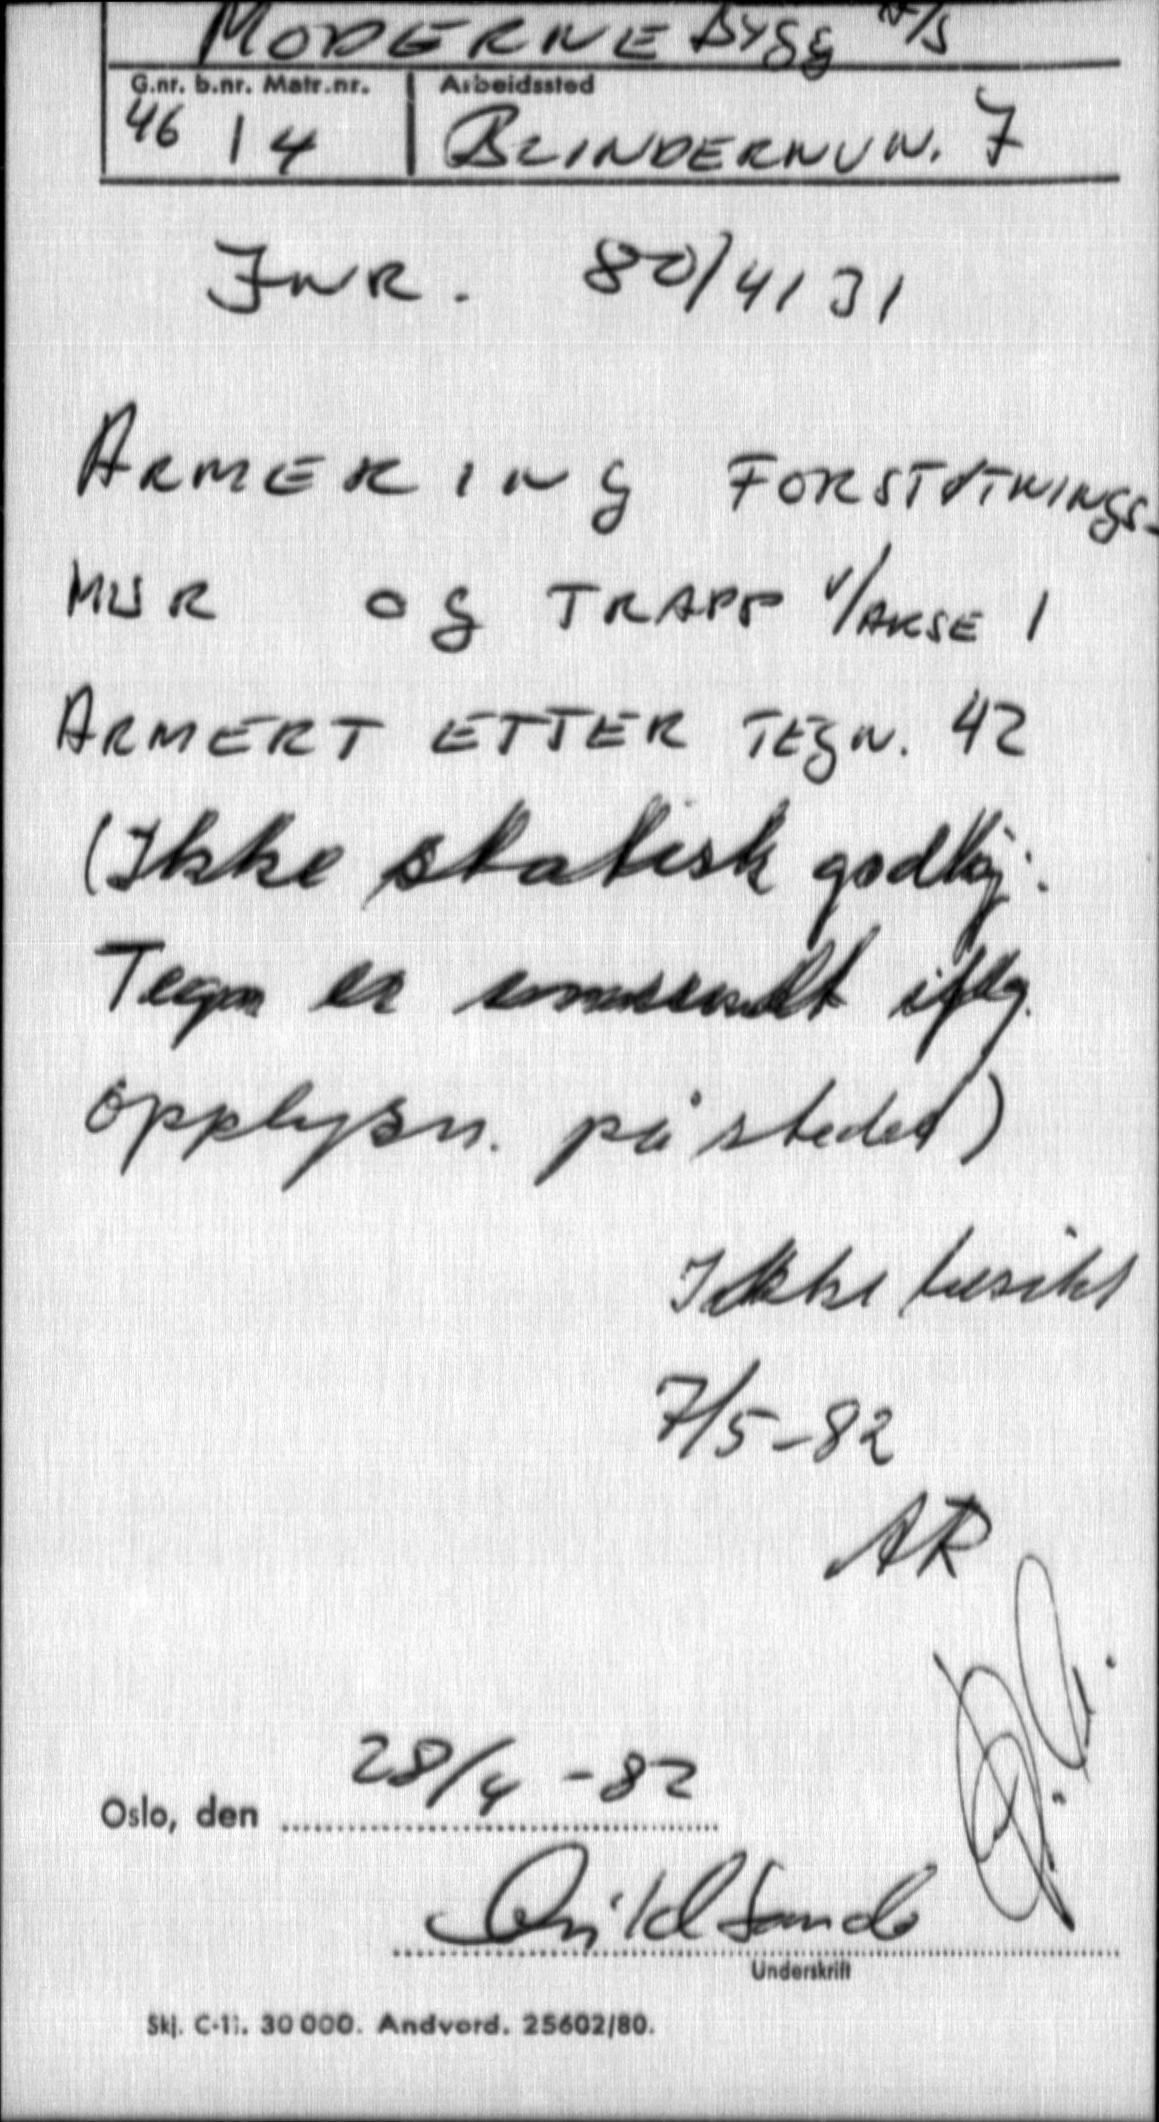 MODERNE BYGG A/S
G.nr. b.nr. Matr.nr. Arbeidssted
46 14 BLINDERNVN. 7
JNR. 80/4131
ARMERING FORSTØTNINGS-
MUR og TRAPP V/AKSE 1
ARMERT ETTER TEGN. 42
(Ikke statisk godkj.
Tegn er innsendt iflg.
opplysn. på stedet)
Ikke besikt
7/5-82
AR
28/4-82
Oslo, den
Underskrift
Skj. C-11. 30 000. Andvord. 25602/80.